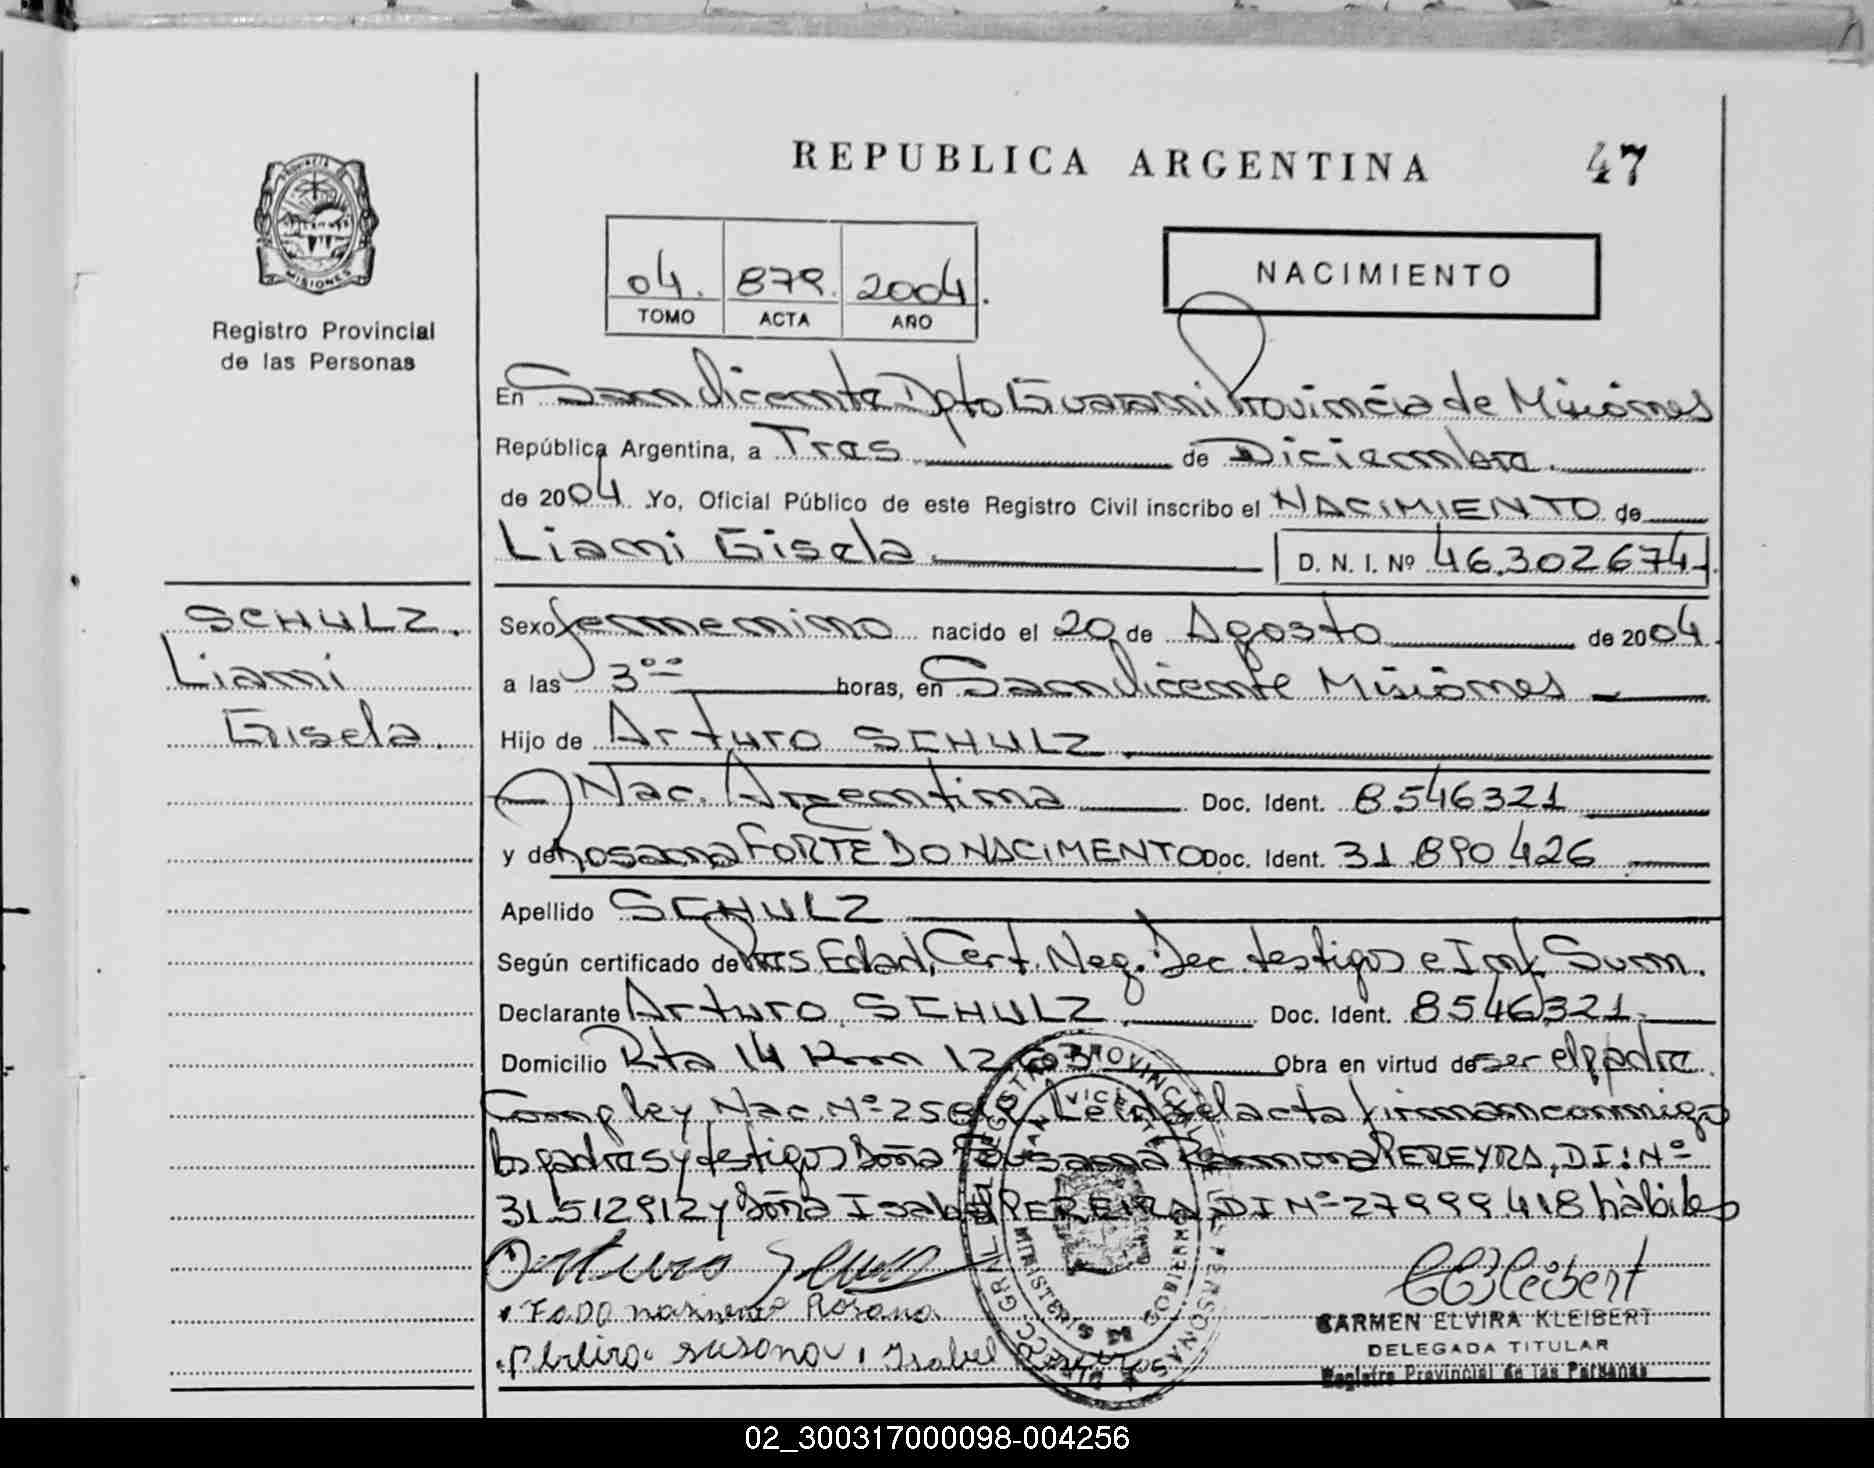 REPUBLICA ARGENTINA
47
PROVINCIA
MISIONES
Registro Provincial
de las Personas
04. 879. 2004.
TOMO ACTA AÑO
NACIMIENTO
En San Vicente Dpto Guarani Provincia de Misiones
República Argentina, a Tres de Diciembre.
de 2004. Yo, Oficial Público de este Registro Civil inscribo el NACIMIENTO de
Liami Gisela. D. N. I. Nº 46.302674.
SCHULZ.
Liami
Gisela.
Sexo femenino nacido el 20 de Agosto de 2004.
a las 3°° horas, en San Vicente Misiones
Hijo de Arturo SCHULZ.
Nac. Argentina Doc. Ident. 8546321
y de Rosana FORTE DO NACIMENTO Doc. Ident. 31.890426
Apellido SCHULZ
Según certificado de Pres Edad, Cert. Neg. Dec. testigos e Inf. Sum.
Declarante Arturo SCHULZ. Doc. Ident. 8546321.
Domicilio Rta 14 Km 1263 Obra en virtud de ser el padre
Comp ley Nac. Nº Leida el acta firman conmigo
los padres y testigos Doña Ramona PEREYRA, DI: Nº
31512912 y Doña Isabel PEREIRA, DI Nº 27999418 hàbiles
Arturo
Rosana
Pereira susana, Isabel
CARMEN ELVIRA KLEIBERT
DELEGADA TITULAR
Registro Provincial de las Personas
02_300317000098-004256